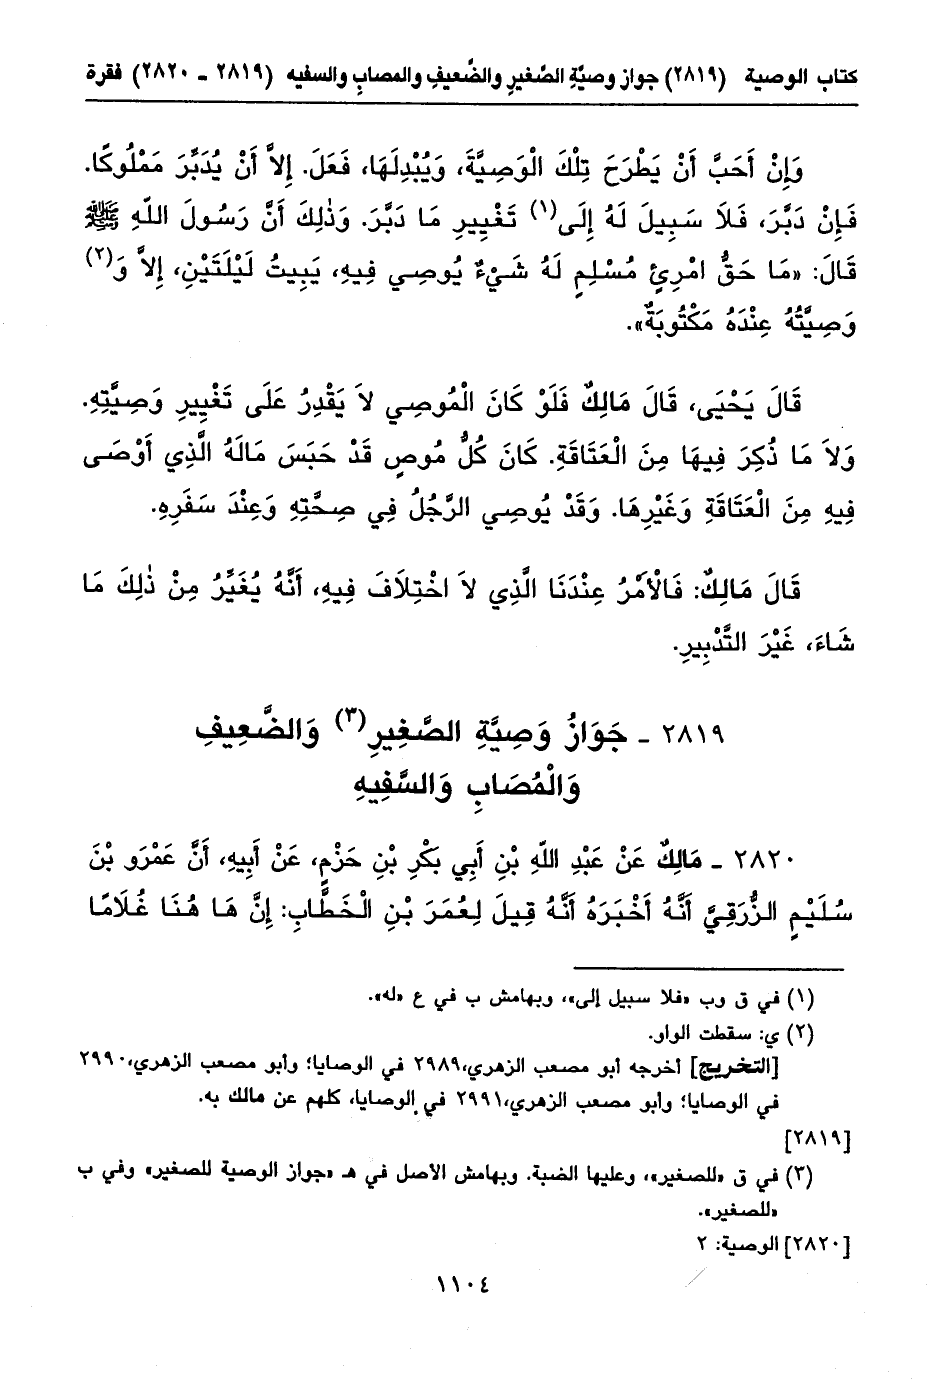 كتاب الوصية (٢٨١٩) جواز وصيَّةِ الصَّغيرِ والضَّعيفِ والمصابِ والسفيه (٢٨١٩ - ٢٨٢٠) فقرة
وَإِنْ أَحَبَّ أَنْ يَطْرَحَ تِلْكَ الْوَصِيَّةَ، وَيُبْدِلَهَا، فَعَلَ. إِلاَّ أَنْ يُدَبِّرَ مَمْلُوكًا.
فَإِنْ دَبَّرَ، فَلاَ سَبِيلَ لَهُ إِلَى(١) تَغْيِيرِ مَا دَبَّرَ. وَذٰلِكَ أَنَّ رَسُولَ اللّٰهِ ﷺ
قَالَ: «مَا حَقُّ امْرِئٍ مُسْلِمٍ لَهُ شَيْءٌ يُوصِي فِيهِ، يَبِيتُ لَيْلَتَيْنِ، إِلاَّ وَ(٢)
وَصِيَّتُهُ عِنْدَهُ مَكْتُوبَةٌ».
قَالَ يَحْيَى، قَالَ مَالِكٌ فَلَوْ كَانَ الْمُوصِي لاَ يَقْدِرُ عَلَى تَغْيِيرِ وَصِيَّتِهِ.
وَلاَ مَا ذُكِرَ فِيهَا مِنَ الْعَتَاقَةِ. كَانَ كُلُّ مُوصٍ قَدْ حَبَسَ مَالَهُ الَّذِي أَوْصَى
فِيهِ مِنَ الْعَتَاقَةِ وَغَيْرِهَا. وَقَدْ يُوصِي الرَّجُلُ فِي صِحَّتِهِ وَعِنْدَ سَفَرِهِ.
قَالَ مَالِكٌ: فَالْأَمْرُ عِنْدَنَا الَّذِي لاَ اخْتِلَافَ فِيهِ، أَنَّهُ يُغَيِّرُ مِنْ ذٰلِكَ مَا
شَاءَ، غَيْرَ التَّدْبِيرِ.
٢٨١٩ - جَوَازُ وَصِيَّةِ الصَّغِيرِ(٣) وَالضَّعِيفِ
وَالْمُصَابِ وَالسَّفِيهِ
٢٨٢٠ - مَالِكٌ عَنْ عَبْدِ اللّٰهِ بْنِ أَبِي بَكْرِ بْنِ حَزْمٍ، عَنْ أَبِيهِ، أَنَّ عَمْرَو بْنَ
سُلَيْمٍ الزُّرَقِيَّ أَنَّهُ أَخْبَرَهُ أَنَّهُ قِيلَ لِعُمَرَ بْنِ الْخَطَّابِ: إِنَّ هَا هُنَا غُلَامًا
(١) في ق وب «فلا سبيل إلى»، وبهامش ب في ع «له».
(٢) ي: سقطت الواو.
[التخريج] أخرجه أبو مصعب الزهري،٢٩٨٩ في الوصايا؛ وأبو مصعب الزهري،٢٩٩٠
في الوصايا؛ وأبو مصعب الزهري،٢٩٩١ في الوصايا، كلهم عن مالك به.
[٢٨١٩]
(٣) في ق «للصغير»، وعليها الضبة. وبهامش الاصل في هـ «جواز الوصية للصغير» وفي ب
«للصغير».
[٢٨٢٠] الوصية: ٢
١١٠٤